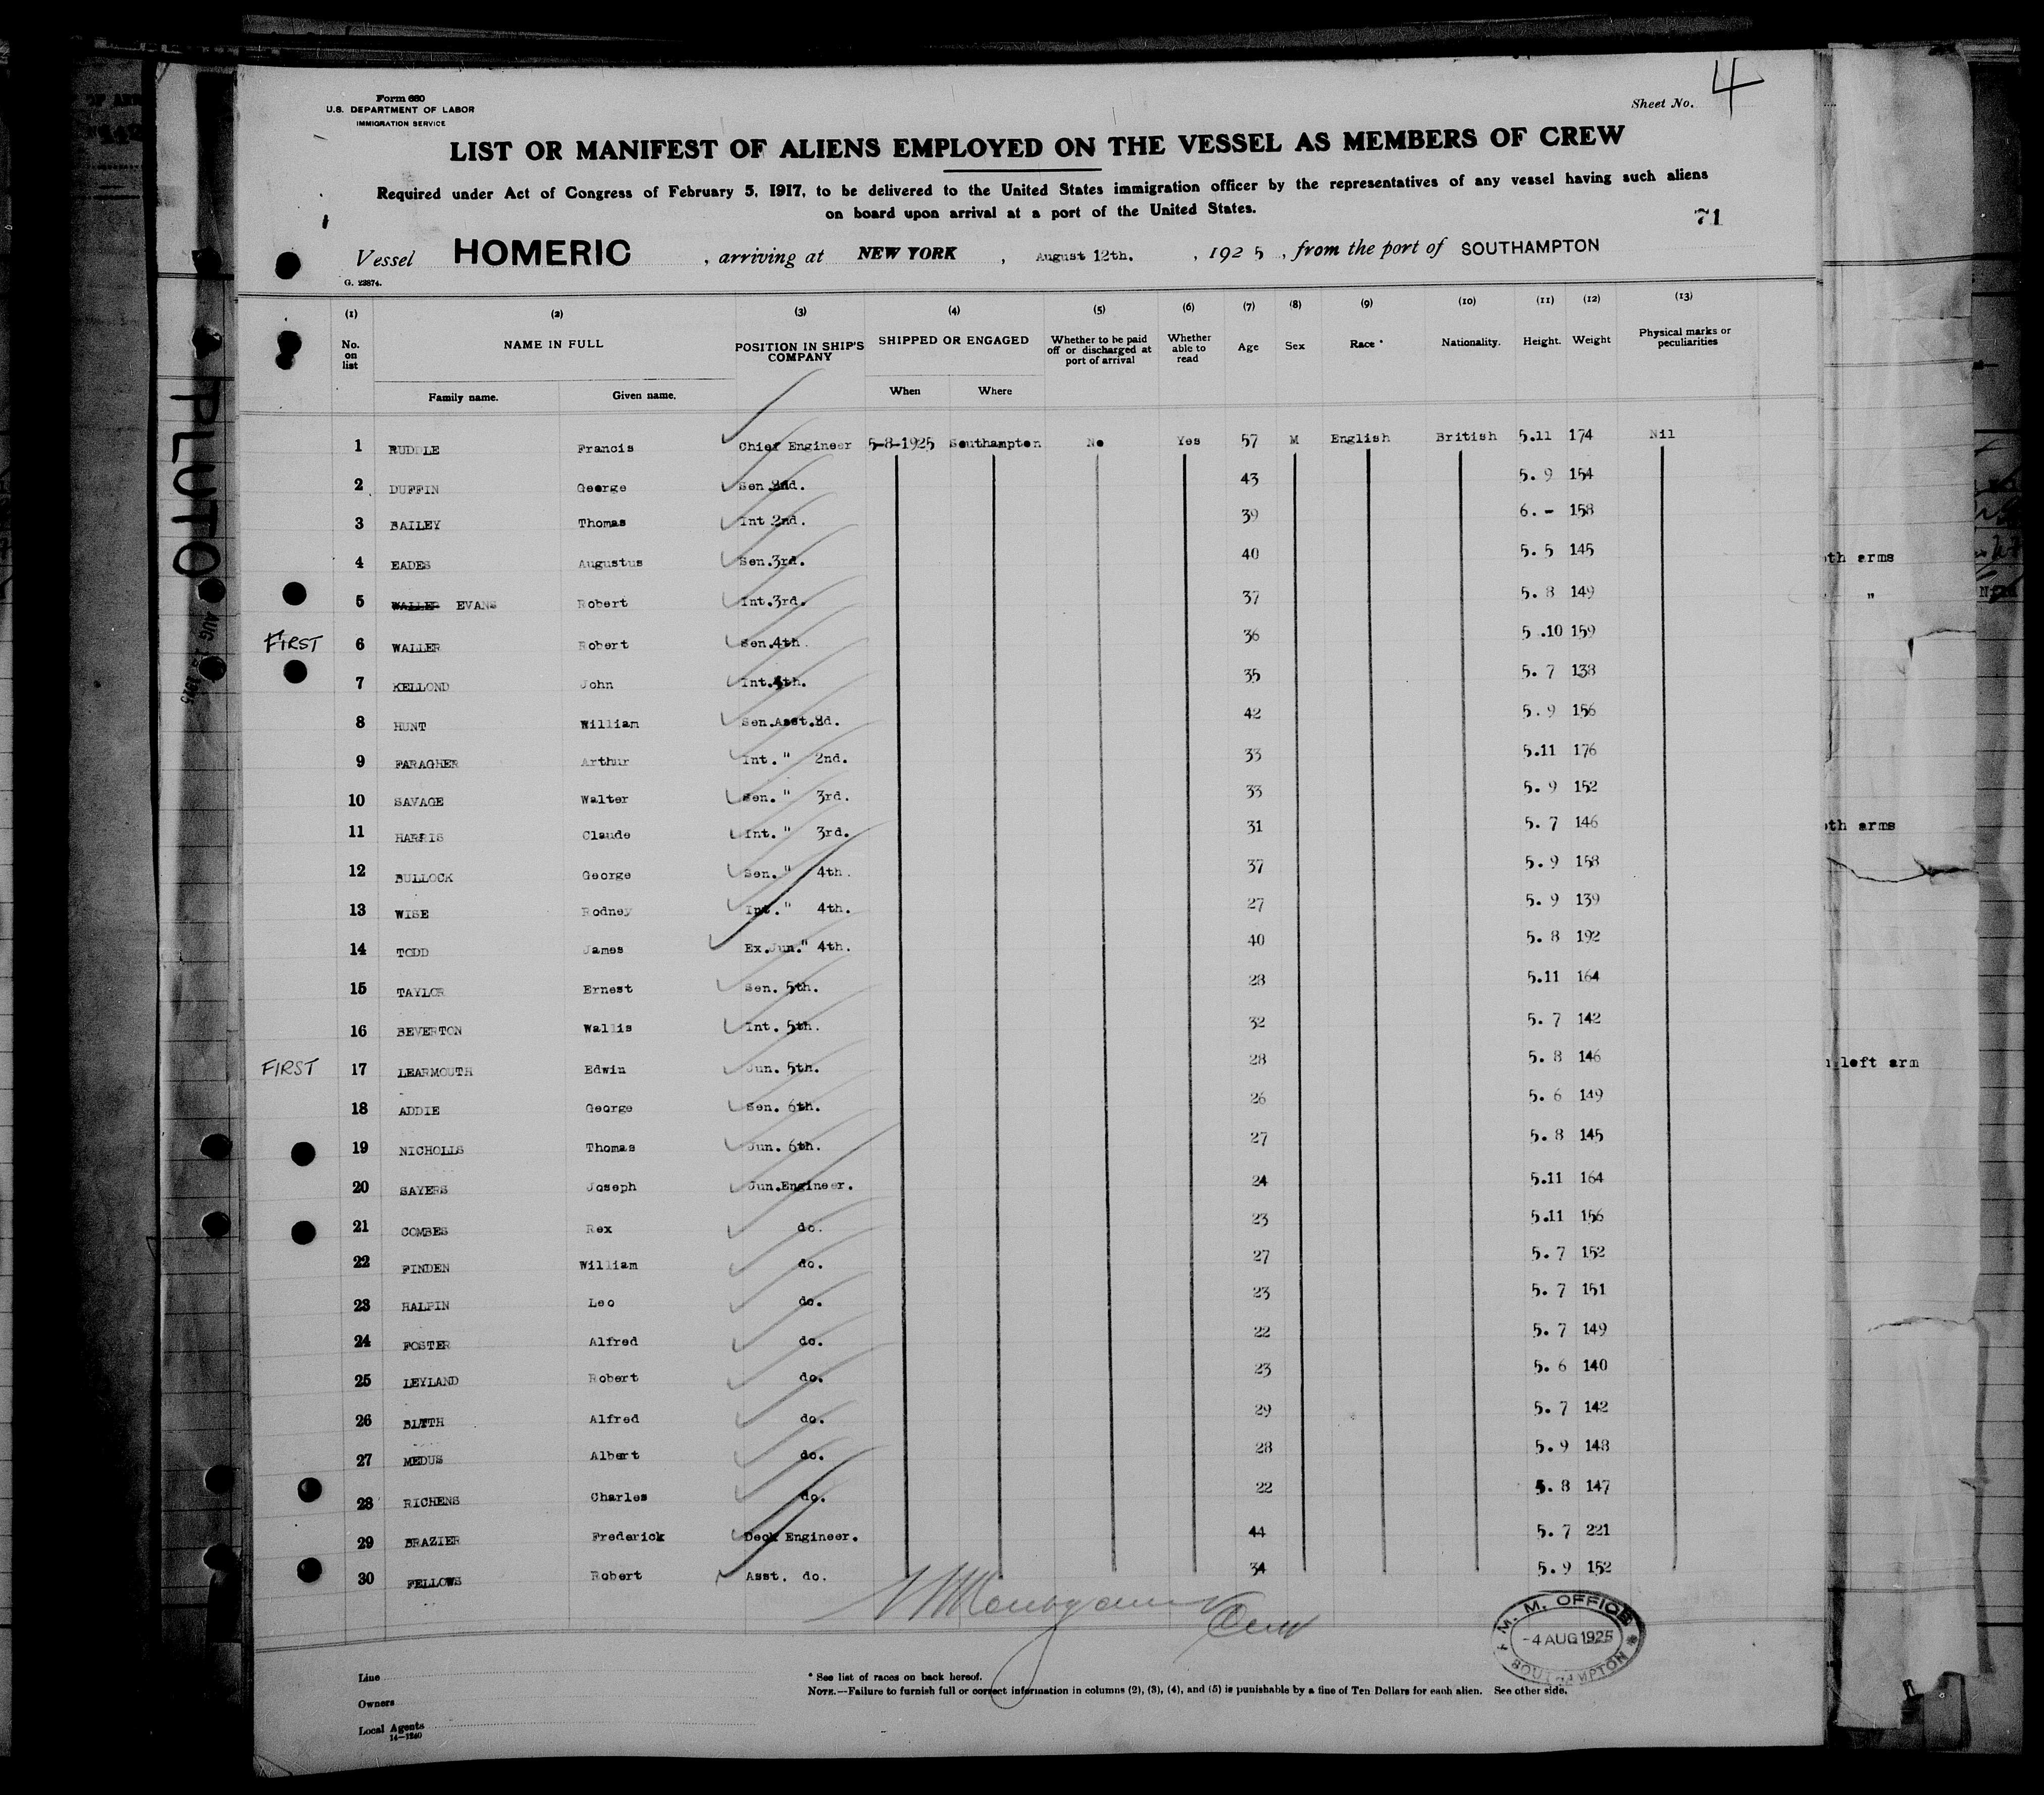 Form 680
U.S. DEPARTMENT OF LABOR
IMMIGRATION SERVICE
Sheet No. 4
LIST OR MANIFEST OF ALIENS EMPLOYED ON THE VESSEL AS MEMBERS OF CREW
Required under Act of Congress of February 5, 1917, to be delivered to the United States immigration officer by the representatives of any vessel having such aliens
on board upon arrival at a port of the United States.
71
Vessel HOMERIC, arriving at NEW YORK, August 12th., 1925, from the port of SOUTHAMPTON
G. 23874.
(1) (2) (3) (4) (5) (6) (7) (8) (9) (10) (11) (12) (13)
No. on list NAME IN FULL POSITION IN SHIP'S COMPANY SHIPPED OR ENGAGED Whether to be paid off or discharged at port of arrival Whether able to read Age Sex Race * Nationality. Height. Weight Physical marks or peculiarities
Family name. Given name. When Where
1 RUDDLE Francis Chief Engineer 5-8-1925 Southampton No Yes 57 M English British 5.11 174 Nil
2 DUFFIN George Sen. 2nd. 43 5. 9 154
3 BAILEY Thomas Int 2nd. 39 6. - 158
4 EADES Augustus Sen.3rd. 40 5. 5 145
5 WALLER EVANS Robert Int.3rd. 37 5. 8 149
FIRST 6 WALLER Robert Sen.4th. 36 5 .10 159
7 KELLOND John Int.4th. 35 5. 7 138
8 HUNT William Sen.Asst.2d. 42 5. 9 156
9 FARAGHER Arthur Int. " 2nd. 33 5.11 176
10 SAVAGE Walter Sen. " 3rd. 33 5. 9 152
11 HARRIS Claude Int. " 3rd. 31 5. 7 146
12 BULLOCK George Sen. " 4th. 37 5. 9 158
13 WISE Rodney Int. " 4th. 27 5. 9 139
14 TODD James Ex.Jun." 4th. 40 5. 8 192
15 TAYLOR Ernest Sen. 5th. 28 5.11 164
16 BEVERTON Wallis Int. 5th. 32 5. 7 142
FIRST 17 LEARMOUTH Edwin Jun. 5th. 28 5. 8 146
18 ADDIE George Sen. 6th. 26 5. 6 149
19 NICHOLLS Thomas Jun. 6th. 27 5. 8 145
20 SAYERS Joseph Jun.Engineer. 24 5.11 164
21 COMBES Rex do. 23 5.11 156
22 FINDEN William do. 27 5. 7 152
23 HALPIN Leo do. 23 5. 7 151
24 FOSTER Alfred do. 22 5. 7 149
25 LEYLAND Robert do. 23 5. 6 140
26 BLYTH Alfred do. 29 5. 7 142
27 MEDUS Albert do. 28 5. 9 148
28 RICHENS Charles do. 22 5. 8 147
29 BRAZIER Frederick Deck Engineer. 44 5. 7 221
30 FELLOWS Robert Asst. do. 34 5. 9 152
M. M. OFFICE
-4 AUG 1925
SOUTHAMPTON
Line
Owners
Local Agents
14-1240
* See list of races on back hereof.
NOTE.—Failure to furnish full or correct information in columns (2), (3), (4), and (5) is punishable by a fine of Ten Dollars for each alien. See other side.
PLUTO
th arms
"
th arms
left arm